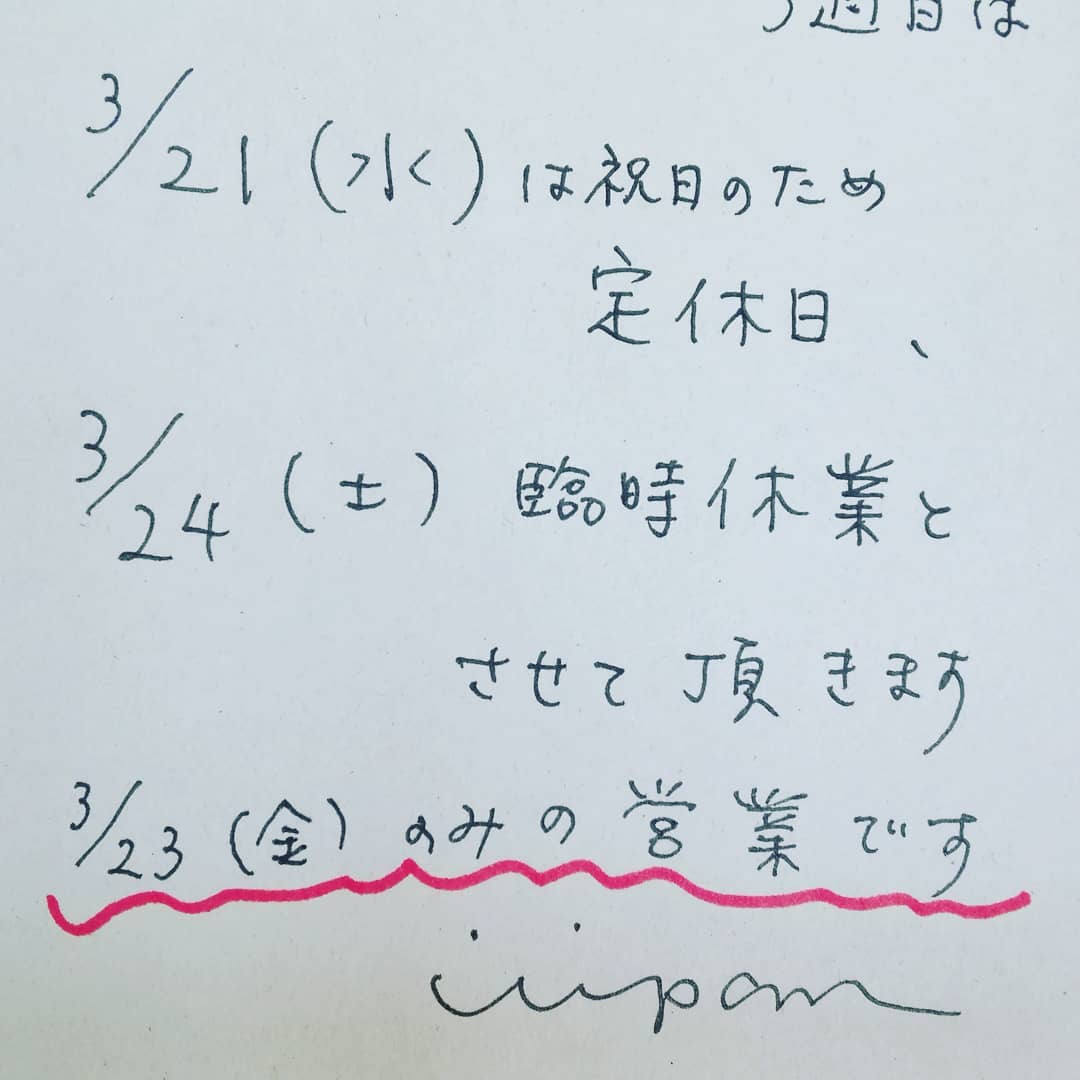 週目は
3/21(水)は祝日のため
定休日、
3/24(土)臨時休業と
させて頂きます
3/23(金)のみの営業です
iipan